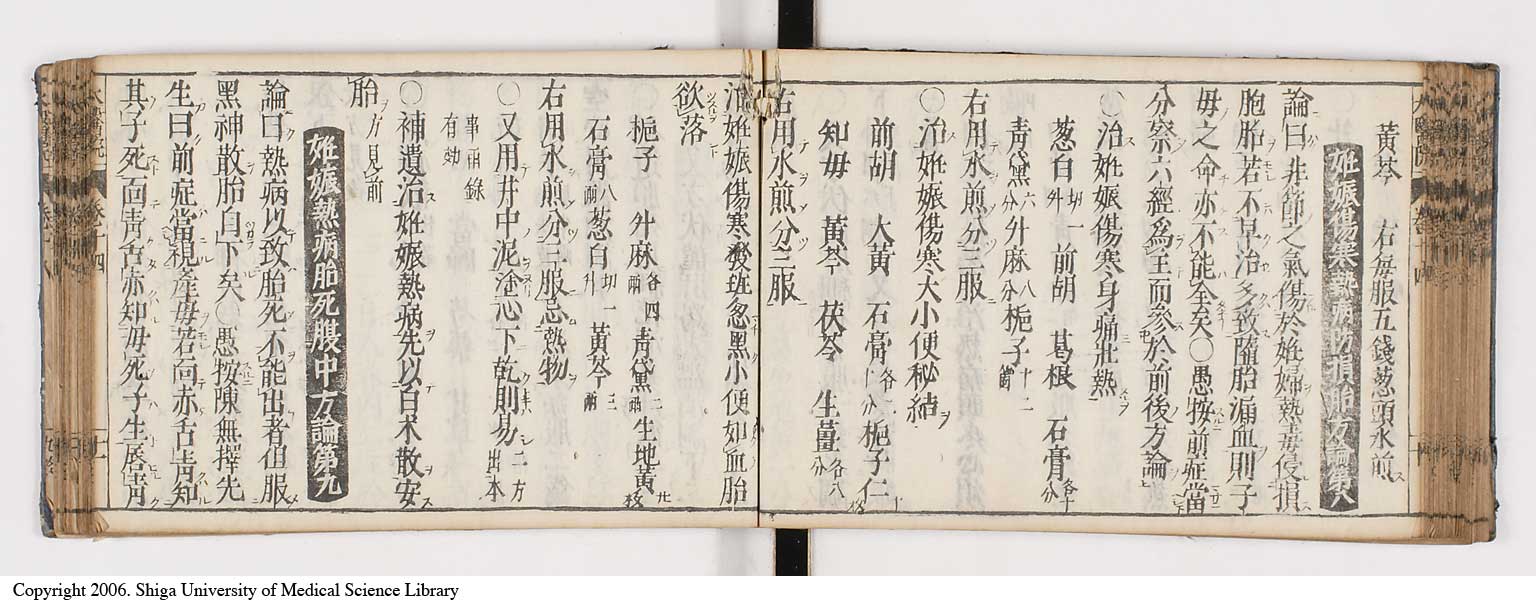 黃芩　右每服五錢葱頭水煎
妊娠傷寒熱病防損胎方論第八
論曰非節之氣傷於妊婦熱毒侵損
胞胎若不早治多致隨胎漏血則子
母之命亦不能全矣○愚按前症當
分察六經爲主而參於前後方論
○治妊娠傷寒身痛壯熱
葱白切一升前胡　葛根　石膏各十分
青黛六分升麻八分梔子十二箇
右用水煎分三服
○治妊娠傷寒大小便秘結
前胡　大黃　石膏各十分梔子仁十枚
知母　黃芩　茯苓　生薑各八分
右用水煎分三服
治妊娠傷寒發斑忽黑小便如血胎
欲落
梔子　升麻各四兩青黛二兩生地黃廿枚
石膏八兩葱白切一升黃芩三兩
右用水煎分三服忌熱物
○又用井中泥塗心下乾則易二方出本
事兩錄
有効
○補遺治妊娠熱病先以白木散安
胎方見前
妊娠熱病胎死腹中方論第九
論曰熱病以致胎死不能出者但服
黑神散胎自下矣○愚按陳無擇先
生曰前症當視產母若面赤舌青知
其子死面青舌赤知母死子生唇青
Copyright 2006. Shiga University of Medical Science Library